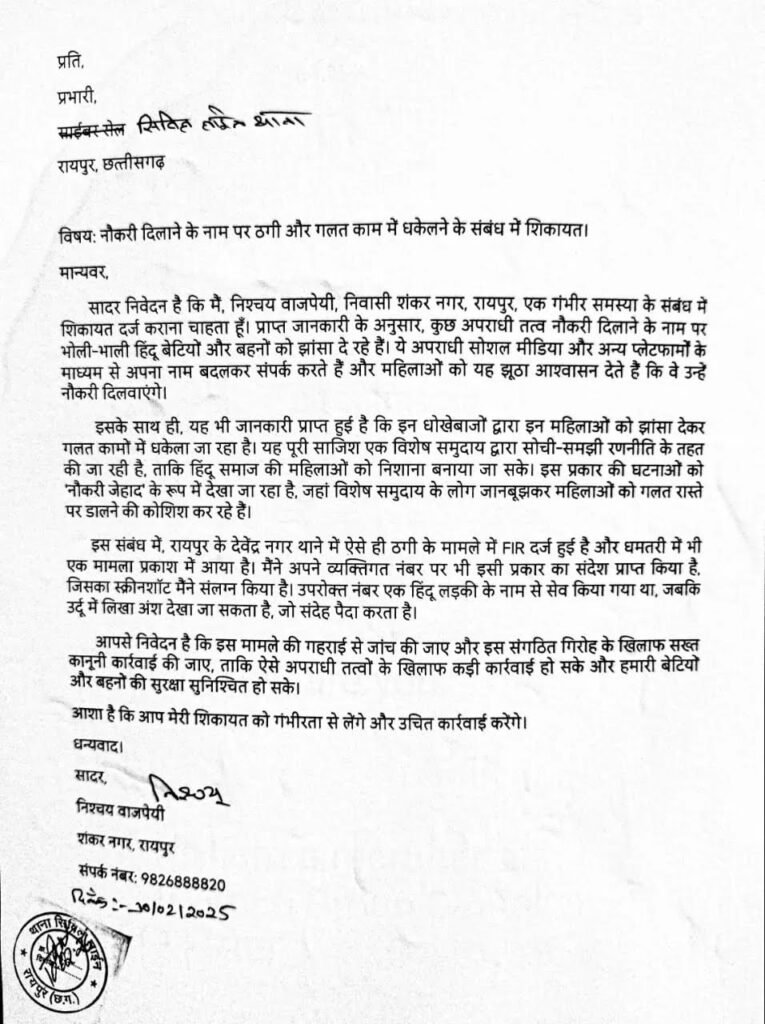 प्रति,
प्रभारी,
साईबर सेल सिविल लाईन थाना
रायपुर, छत्तीसगढ़
विषय: नौकरी दिलाने के नाम पर ठगी और गलत काम में धकेलने के संबंध में शिकायत।
मान्यवर,
सादर निवेदन है कि मैं, निश्चय वाजपेयी, निवासी शंकर नगर, रायपुर, एक गंभीर समस्या के संबंध में
शिकायत दर्ज कराना चाहता हूँ। प्राप्त जानकारी के अनुसार, कुछ अपराधी तत्व नौकरी दिलाने के नाम पर
भोली-भाली हिंदू बेटियों और बहनों को झांसा दे रहे हैं। ये अपराधी सोशल मीडिया और अन्य प्लेटफार्मों के
माध्यम से अपना नाम बदलकर संपर्क करते हैं और महिलाओं को यह झूठा आश्वासन देते हैं कि वे उन्हें
नौकरी दिलवाएंगे।
इसके साथ ही, यह भी जानकारी प्राप्त हुई है कि इन धोखेबाजों द्वारा इन महिलाओं को झांसा देकर
गलत कामों में धकेला जा रहा है। यह पूरी साजिश एक विशेष समुदाय द्वारा सोची-समझी रणनीति के तहत
की जा रही है, ताकि हिंदू समाज की महिलाओं को निशाना बनाया जा सके। इस प्रकार की घटनाओं को
'नौकरी जेहाद' के रूप में देखा जा रहा है, जहां विशेष समुदाय के लोग जानबूझकर महिलाओं को गलत रास्ते
पर डालने की कोशिश कर रहे हैं।
इस संबंध में, रायपुर के देवेंद्र नगर थाने में ऐसे ही ठगी के मामले में FIR दर्ज हुई है और धमतरी में भी
एक मामला प्रकाश में आया है। मैंने अपने व्यक्तिगत नंबर पर भी इसी प्रकार का संदेश प्राप्त किया है,
जिसका स्क्रीनशॉट मैंने संलग्न किया है। उपरोक्त नंबर एक हिंदू लड़की के नाम से सेव किया गया था, जबकि
उर्दू में लिखा अंश देखा जा सकता है, जो संदेह पैदा करता है।
आपसे निवेदन है कि इस मामले की गहराई से जांच की जाए और इस संगठित गिरोह के खिलाफ सख्त
कानूनी कार्रवाई की जाए, ताकि ऐसे अपराधी तत्वों के खिलाफ कड़ी कार्रवाई हो सके और हमारी बेटियों
और बहनों की सुरक्षा सुनिश्चित हो सके।
आशा है कि आप मेरी शिकायत को गंभीरता से लेंगे और उचित कार्रवाई करेंगे।
धन्यवाद।
सादर,
निश्चय
निश्चय वाजपेयी
शंकर नगर, रायपुर
संपर्क नंबर: 9826888820
दिनाँक :- 10/02/2025
थाना सिविल लाईन
रायपुर (छ.ग.)